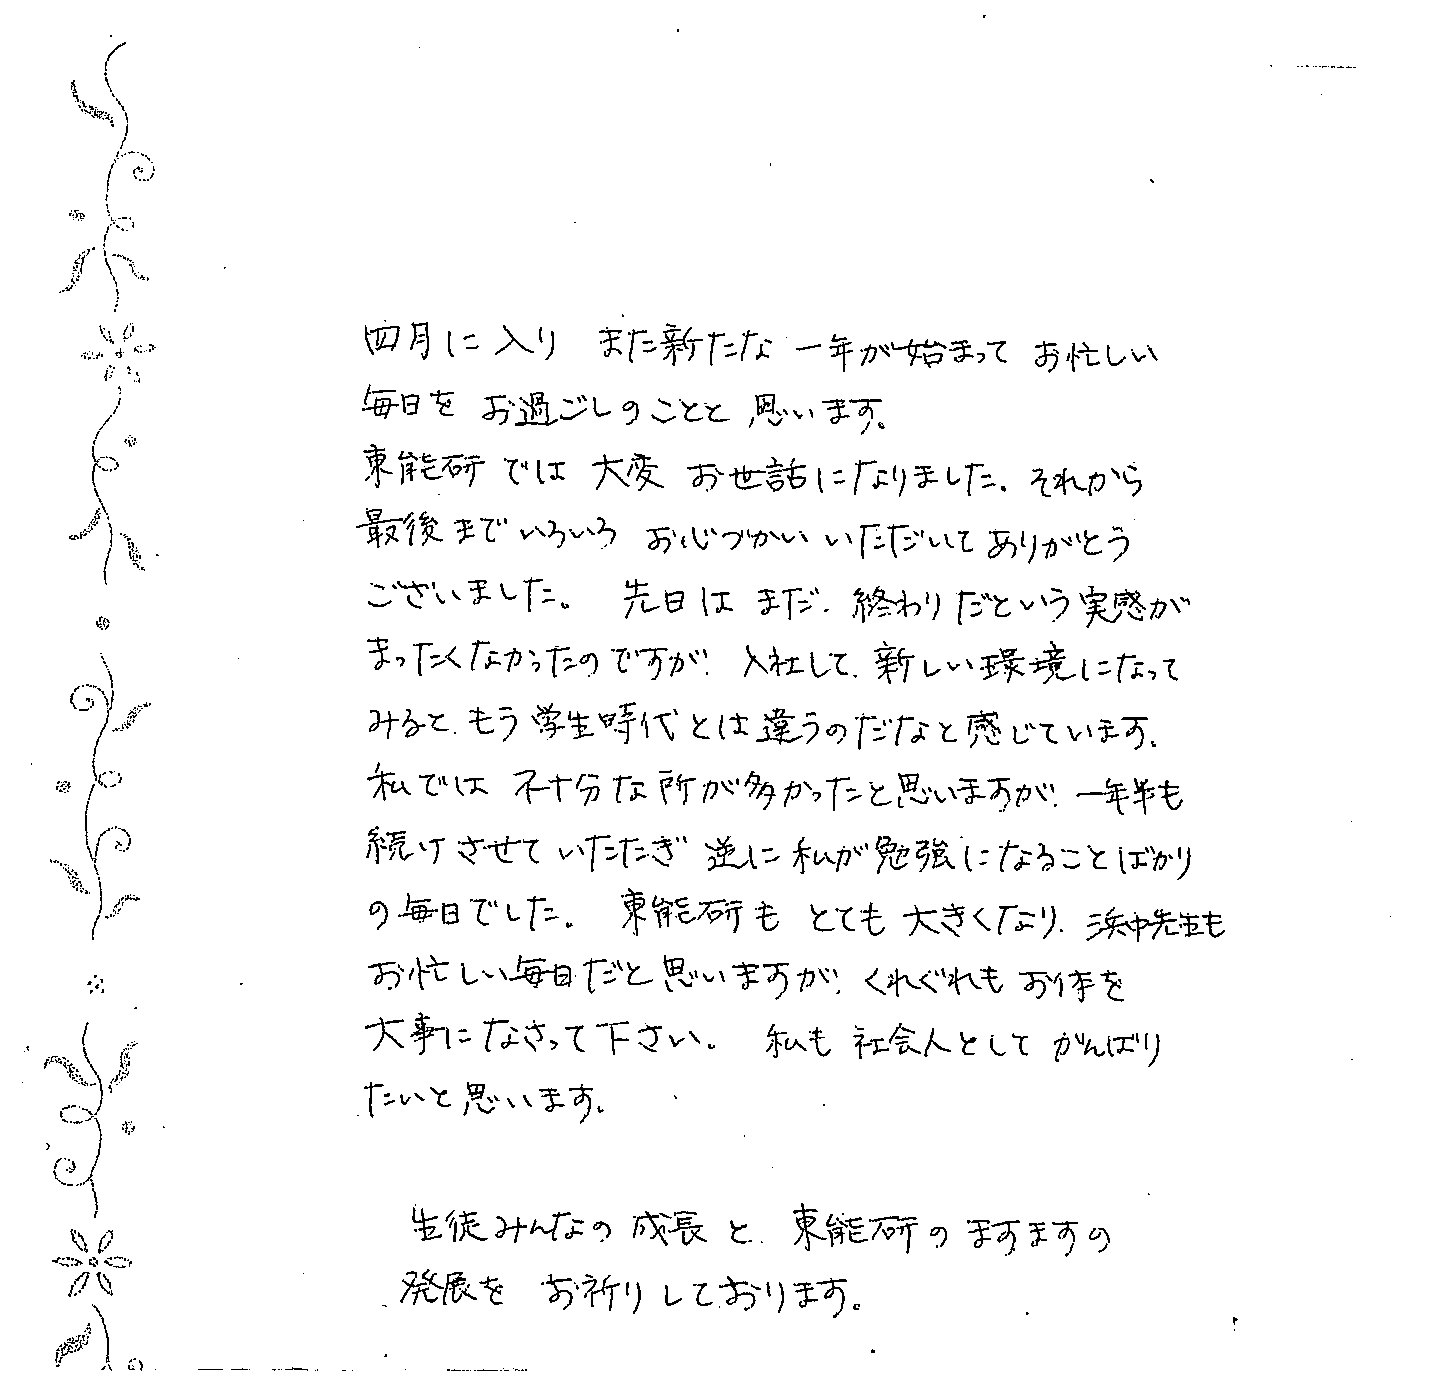 四月に入り また新たな 一年が始まって お忙しい
毎日を お過ごしのことと 思います。
東能研では 大変 お世話になりました。それから
最後まで いろいろ お心づかい いただいて ありがとう
ございました。 先日は まだ、終わりだという実感が
まったくなかったのですが、入社して、新しい環境になって
みると、もう学生時代とは違うのだなと感じています。
私では 不十分な所が多かったと思いますが、一年半も
続けさせて いたたぎ 逆に私が勉強になることばかり
の毎日でした。 東能研も とても 大きくなり、浜中先生も
お忙しい毎日だと思いますが、くれぐれも お体を
大事になさって下さい。 私も 社会人として がんばり
たいと思います。
生徒みんなの成長と、東能研のますますの
発展を お祈りしております。